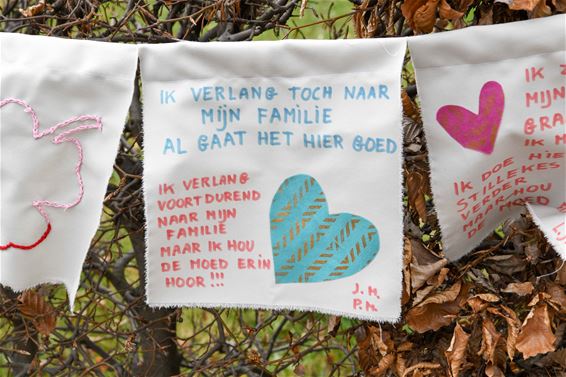 IK VERLANG TOCH NAAR
MIJN FAMILIE
AL GAAT HET HIER GOED
IK VERLANG
VOORTDUREND
NAAR MIJN
FAMILIE
MAAR IK HOU
DE MOED ERIN
HOOR !!!
J.M.
P.M.
IK
MIJN
GRA
IK M
HIE
IK DOE
STILLEKES
VERDER
MAAR HOU
MOED
DE